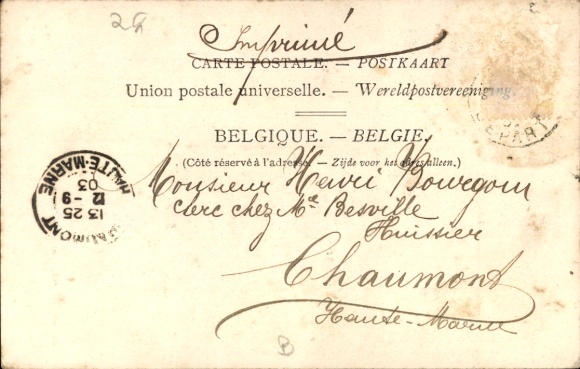 2f
Imprimé
CARTE POSTALE. — POSTKAART
Union postale universelle. — Wereldpostvereeniging.
BELGIQUE. — BELGIE.
(Côté réservé à l'adresse. — Zijde voor het adres alleen.)
Monsieur Henri Bourgoin
clerc chez Me Besville
Huissier
Chaumont
Haute-Marne
CHAUMONT
HAUTE-MARNE
13 25
12 -9
03
DEPART
B